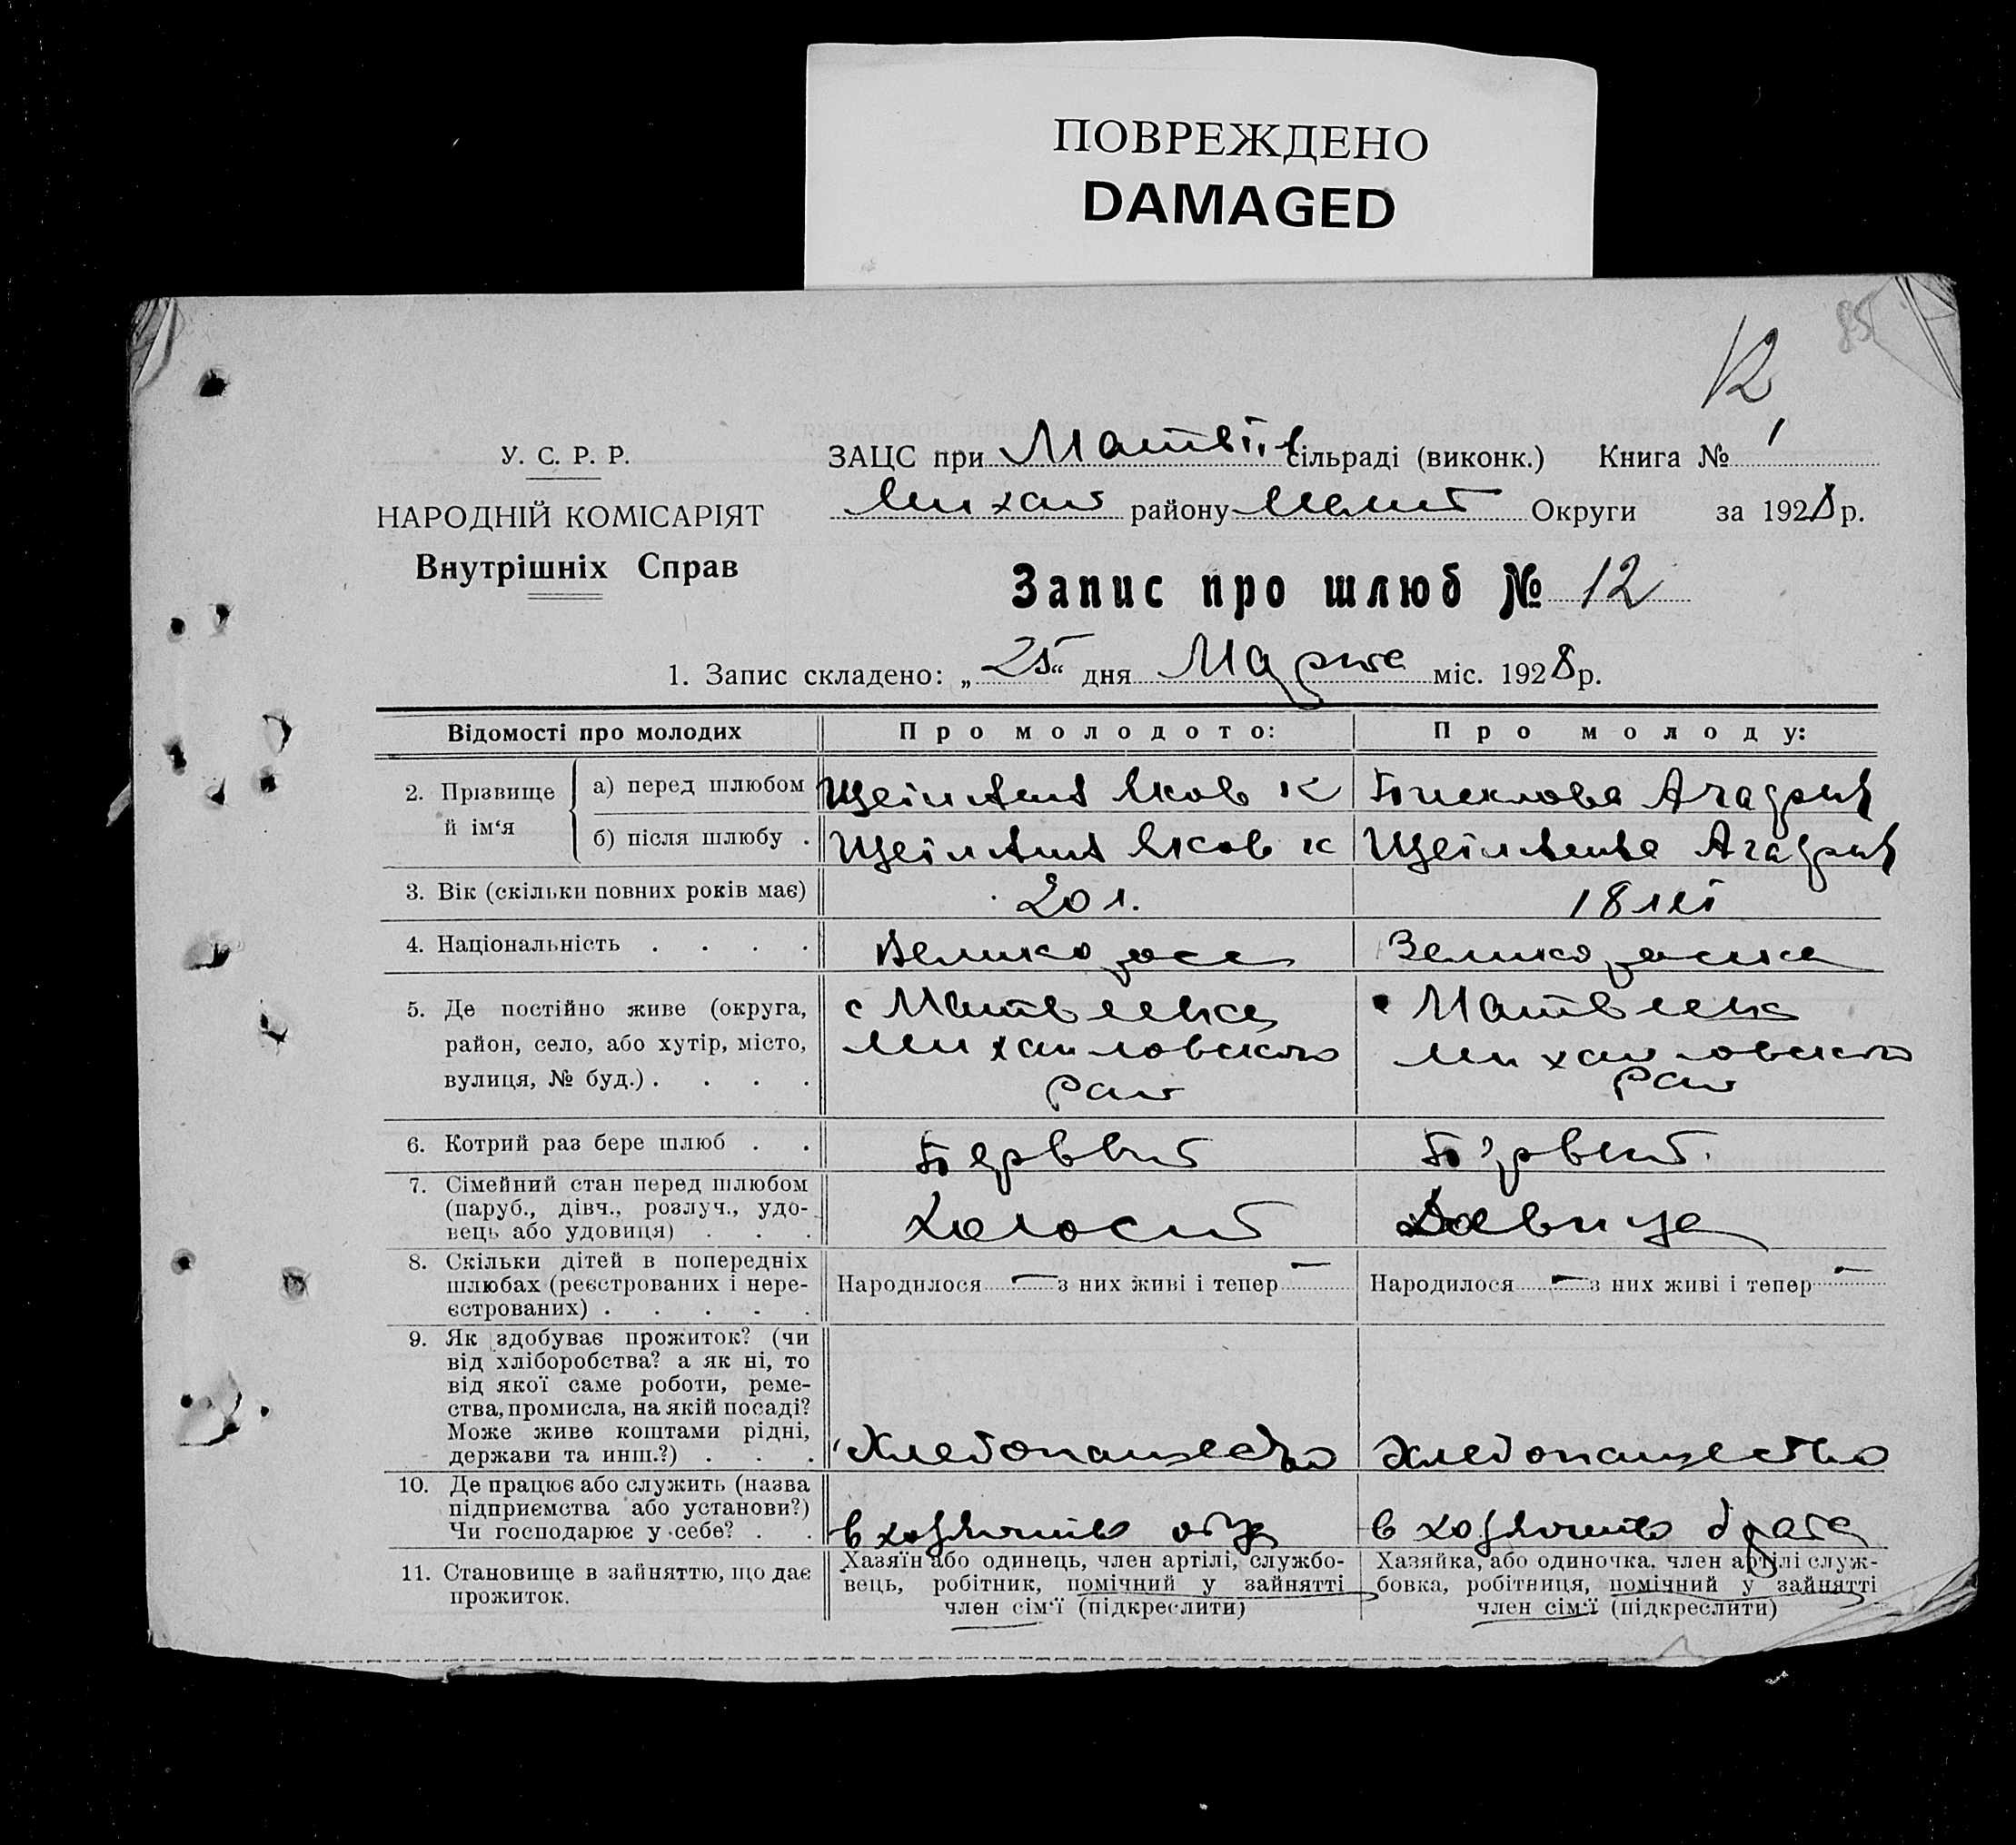 ПОВРЕЖДЕНО
DAMAGED
85
12
У. С. Р. Р.
НАРОДНІЙ КОМІСАРІЯТ
Внутрішніх Справ
ЗАЦС при Матвіїв сільраді (виконк.) Книга № 1
Михай району Мелит Округи за 1928 р.
Запис про шлюб № 12
1. Запис складено: „25“ дня Марта міс. 1928 р.
Відомості про молодих Про молодого: Про молоду:
2. Прізвище й ім‘я
а) перед шлюбом Яков К
б) після шлюбу . Яков К
3. Вік (скільки повних років має) 20 л. 18 лет
4. Національність . . . . Великоросс Великороска
5. Де постійно живе (округа, с Матвеевка Матвеевка
район, село, або хутір, місто, Михайловского Михайловского
вулиця, № буд.) . . . . рай рай
6. Котрий раз бере шлюб . .
7. Сімейний стан перед шлюбом
(паруб., дівч., розлуч., удо-
вець або удовиця) . . . Холост Девица
8. Скільки дітей в попередніх
шлюбах (реєстрованих і нере- Народилося — з них живі і тепер — Народилося — з них живі і тепер —
єстрованих) . . . . .
9. Як здобуває прожиток? (чи
від хліборобства? а як ні, то
від якої саме роботи, реме-
ства, промисла, на якій посаді?
Може живе коштами рідні,
держави та инш.?) . . . Хлебопашество Хлебопашество
10. Де працює або служить (назва
підприємства або установи?)
Чи господарює у себе? . . в хозяйстве отца в хозяйстве брата
11. Становище в зайняттю, що дає прожиток.
Хазяїн або одинець, член артілі, службо-
вець, робітник, помічний у зайнятті
член сім‘ї (підкреслити)
Хазяйка, або одиночка, член артілі служ-
бовка, робітниця, помічний у зайнятті
член сім‘ї (підкреслити)